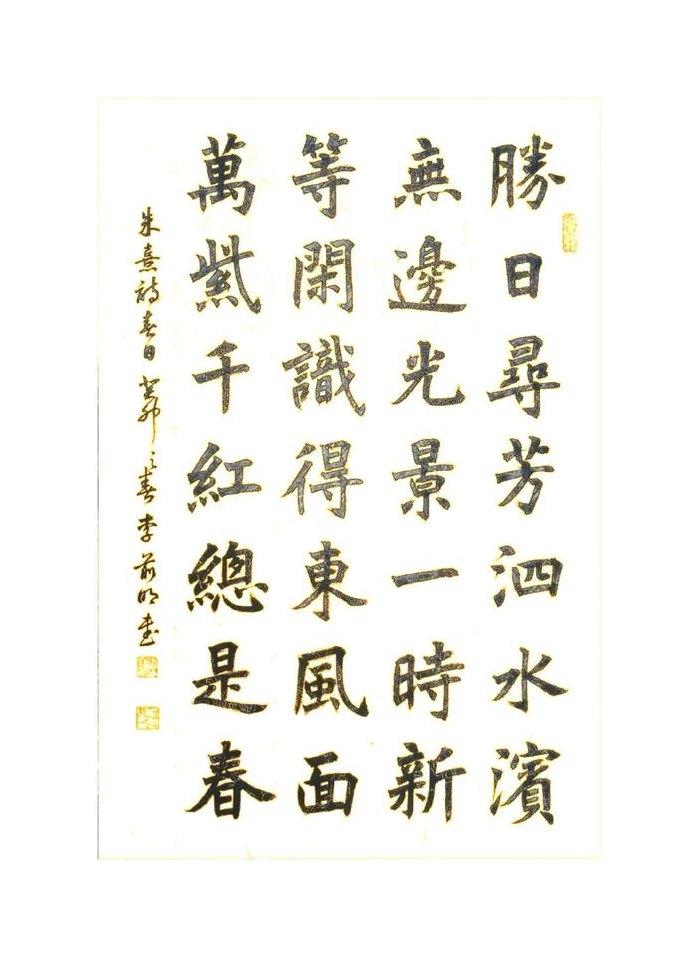 勝日尋芳泗水濱
無邊光景一時新
等閑識得東風面
萬紫千紅總是春
朱熹詩春日 癸卯之春李前明書